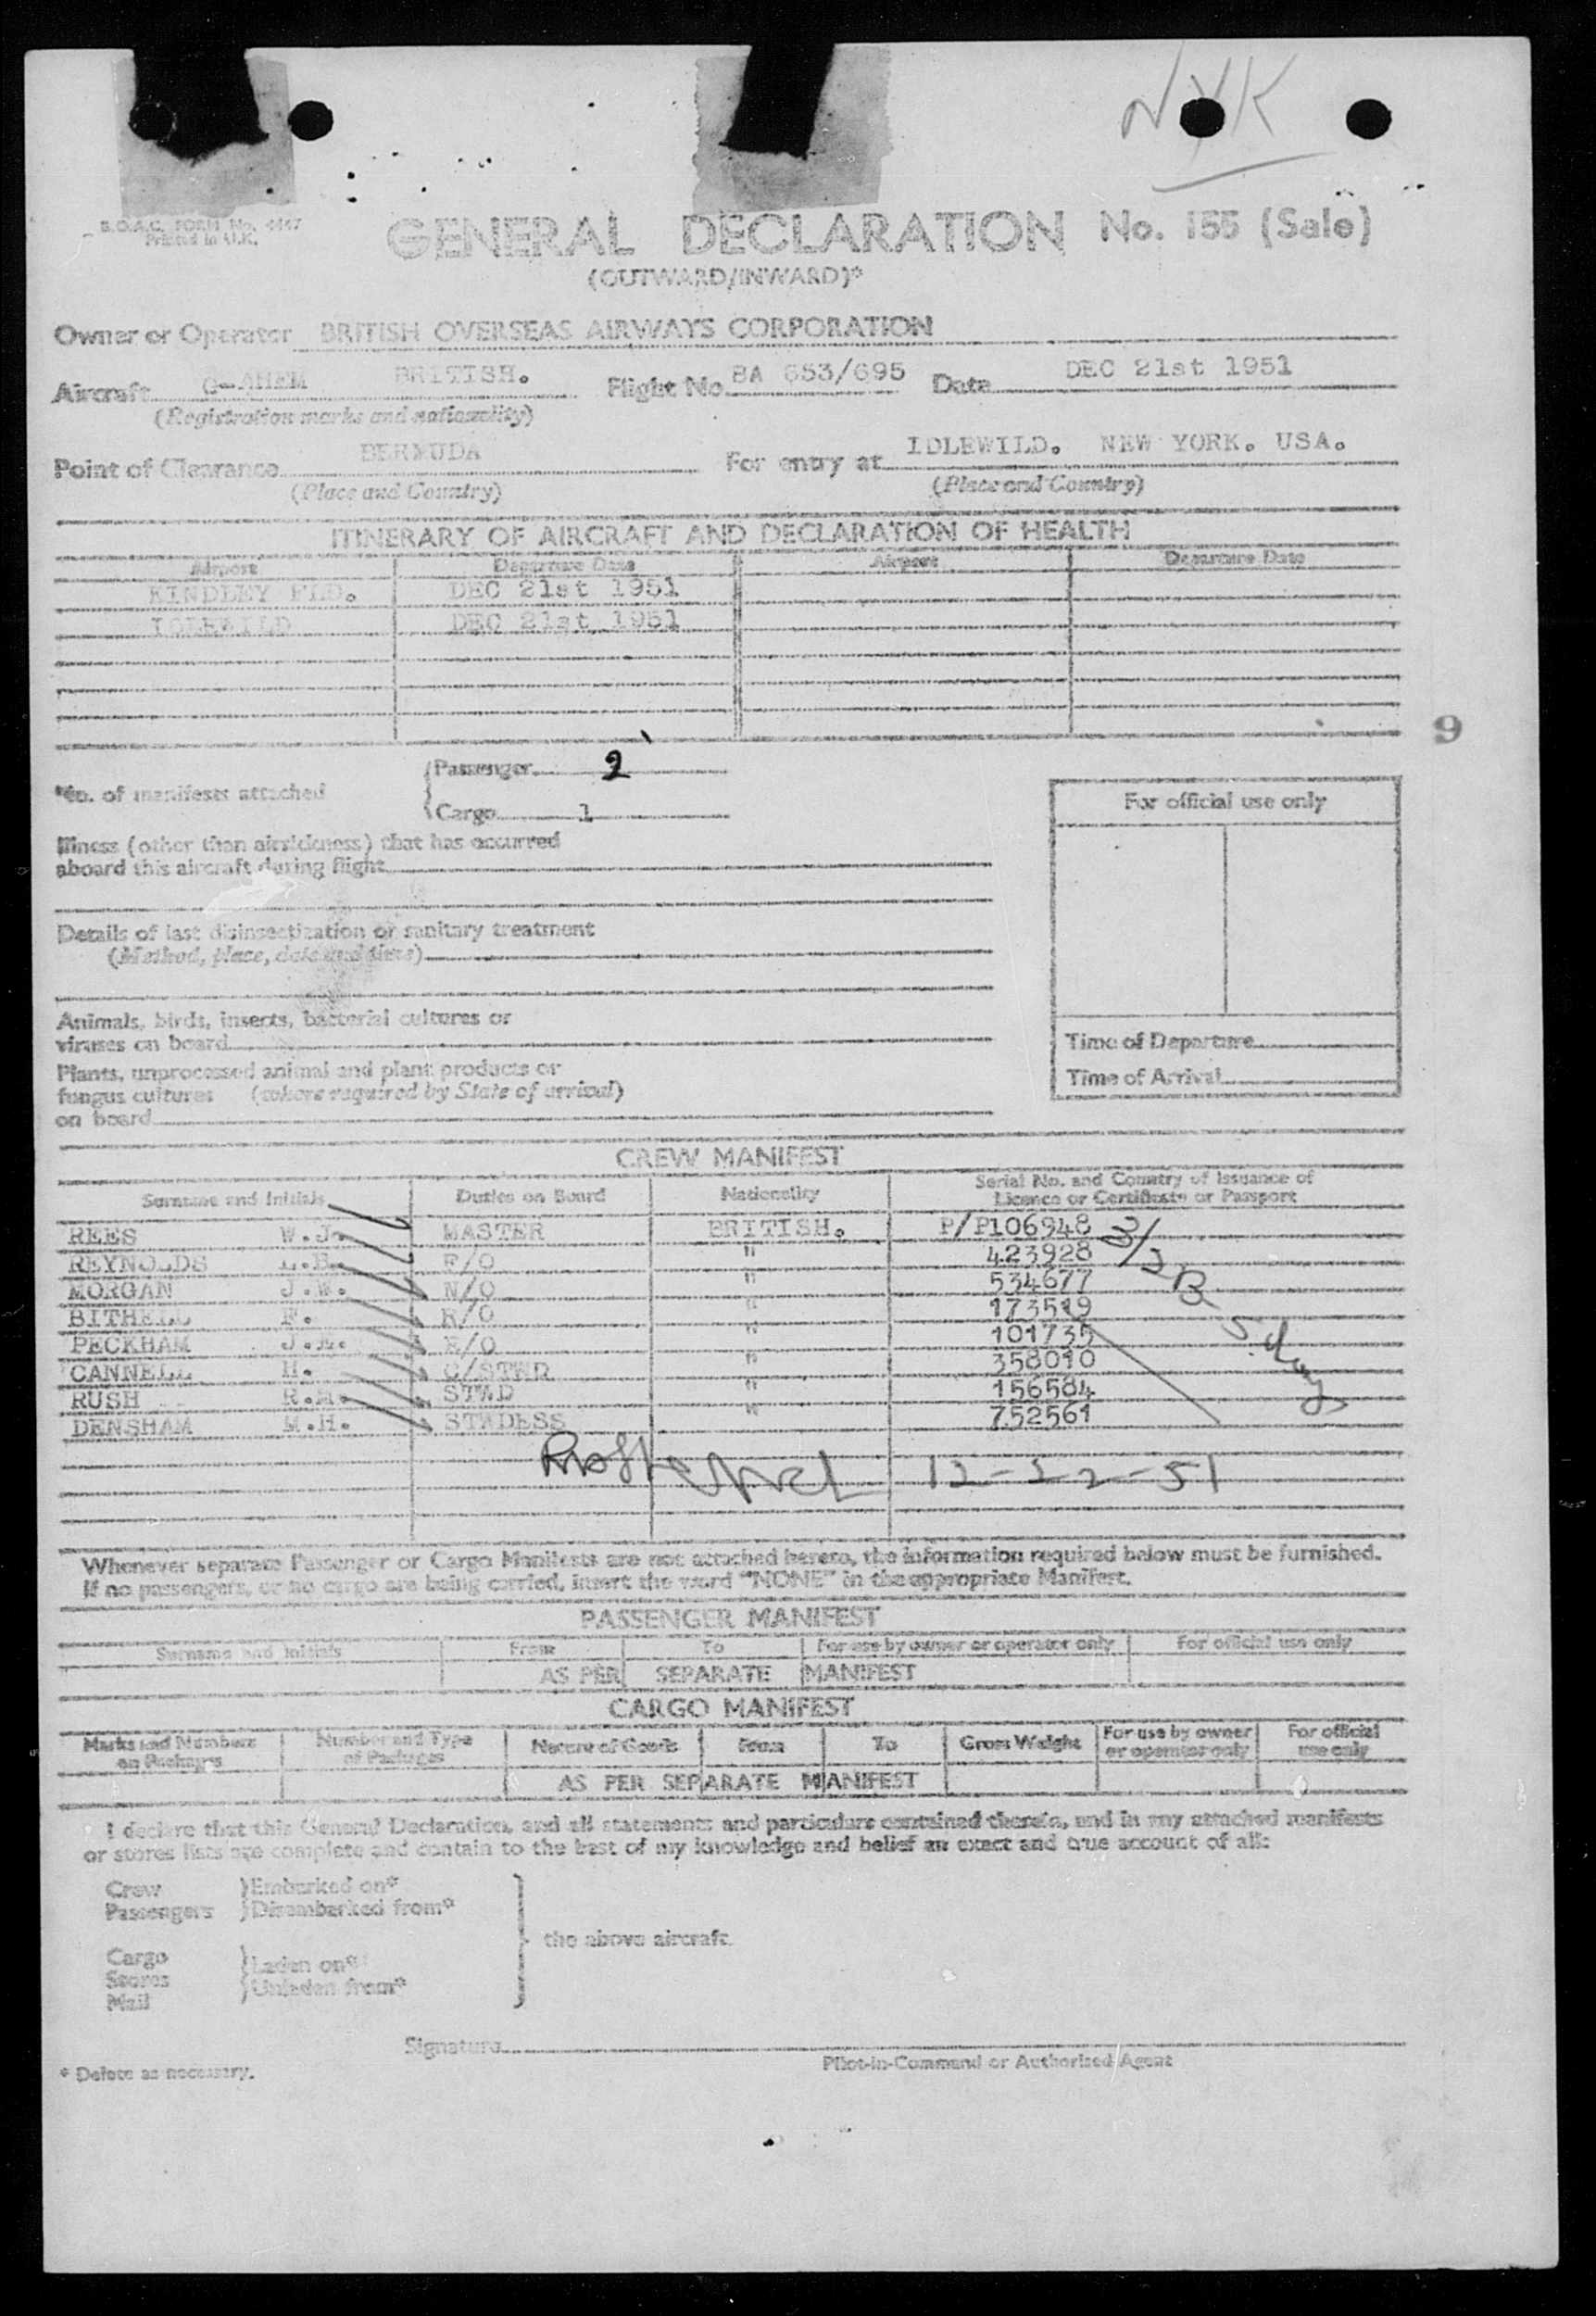 NYK
B.O.A.C. FORM No. 4447
Printed in U.K.
GENERAL DECLARATION No. 155 (Sale)
(OUTWARD/INWARD)*
Owner or Operator BRITISH OVERSEAS AIRWAYS CORPORATION
Aircraft G-AHEM BRITISH. Flight No. BA 653/695 Date DEC 21st 1951
(Registration marks and nationality)
Point of Clearance BERMUDA For entry at IDLEWILD. NEW YORK. USA.
(Place and Country) (Place and Country)
ITINERARY OF AIRCRAFT AND DECLARATION OF HEALTH
Airport Departure Date Airport Departure Date
KINDLEY FLD. DEC 21st 1951
IDLEWILD DEC 21st 1951
9
Passenger 2
*No. of manifests attached
Cargo 1
For official use only
Illness (other than airsickness) that has occurred
aboard this aircraft during flight
Details of last disinsectization or sanitary treatment
(Method, place, date and time)
Animals, birds, insects, bacterial cultures or
viruses on board
Time of Departure
Plants, unprocessed animal and plant products or
fungus cultures (where required by State of arrival)
Time of Arrival
on board
CREW MANIFEST
Surname and Initials Duties on Board Nationality Serial No. and Country of Issuance of Licence or Certificate or Passport
REES W.J. MASTER BRITISH. P/P106948
REYNOLDS F/O " 423928
MORGAN J.W. N/O " 534677
BITHELL F. R/O " 173519
PECKHAM E/O " 101735
CANNELL H. C/STWD " 358010
RUSH R.H. STWD " 156584
DENSHAM M.H. STWDESS " 752561
12-22-51
Whenever separate Passenger or Cargo Manifests are not attached hereto, the information required below must be furnished.
If no passengers, or no cargo are being carried, insert the word "NONE" in the appropriate Manifest.
PASSENGER MANIFEST
Surname and Initials From To For use by owner or operator only For official use only
AS PER SEPARATE MANIFEST
CARGO MANIFEST
Marks and Numbers on Packages Number and Type of Packages Nature of Goods From To Gross Weight For use by owner or operator only For official use only
AS PER SEPARATE MANIFEST
I declare that this General Declaration, and all statements and particulars contained therein, and in any attached manifests
or stores lists are complete and contain to the best of my knowledge and belief an exact and true account of all:
Crew Embarked on*
Passengers Disembarked from*
the above aircraft.
Cargo Laden on*
Stores Unladen from*
Mail
Signature
Pilot-in-Command or Authorised Agent
* Delete as necessary.